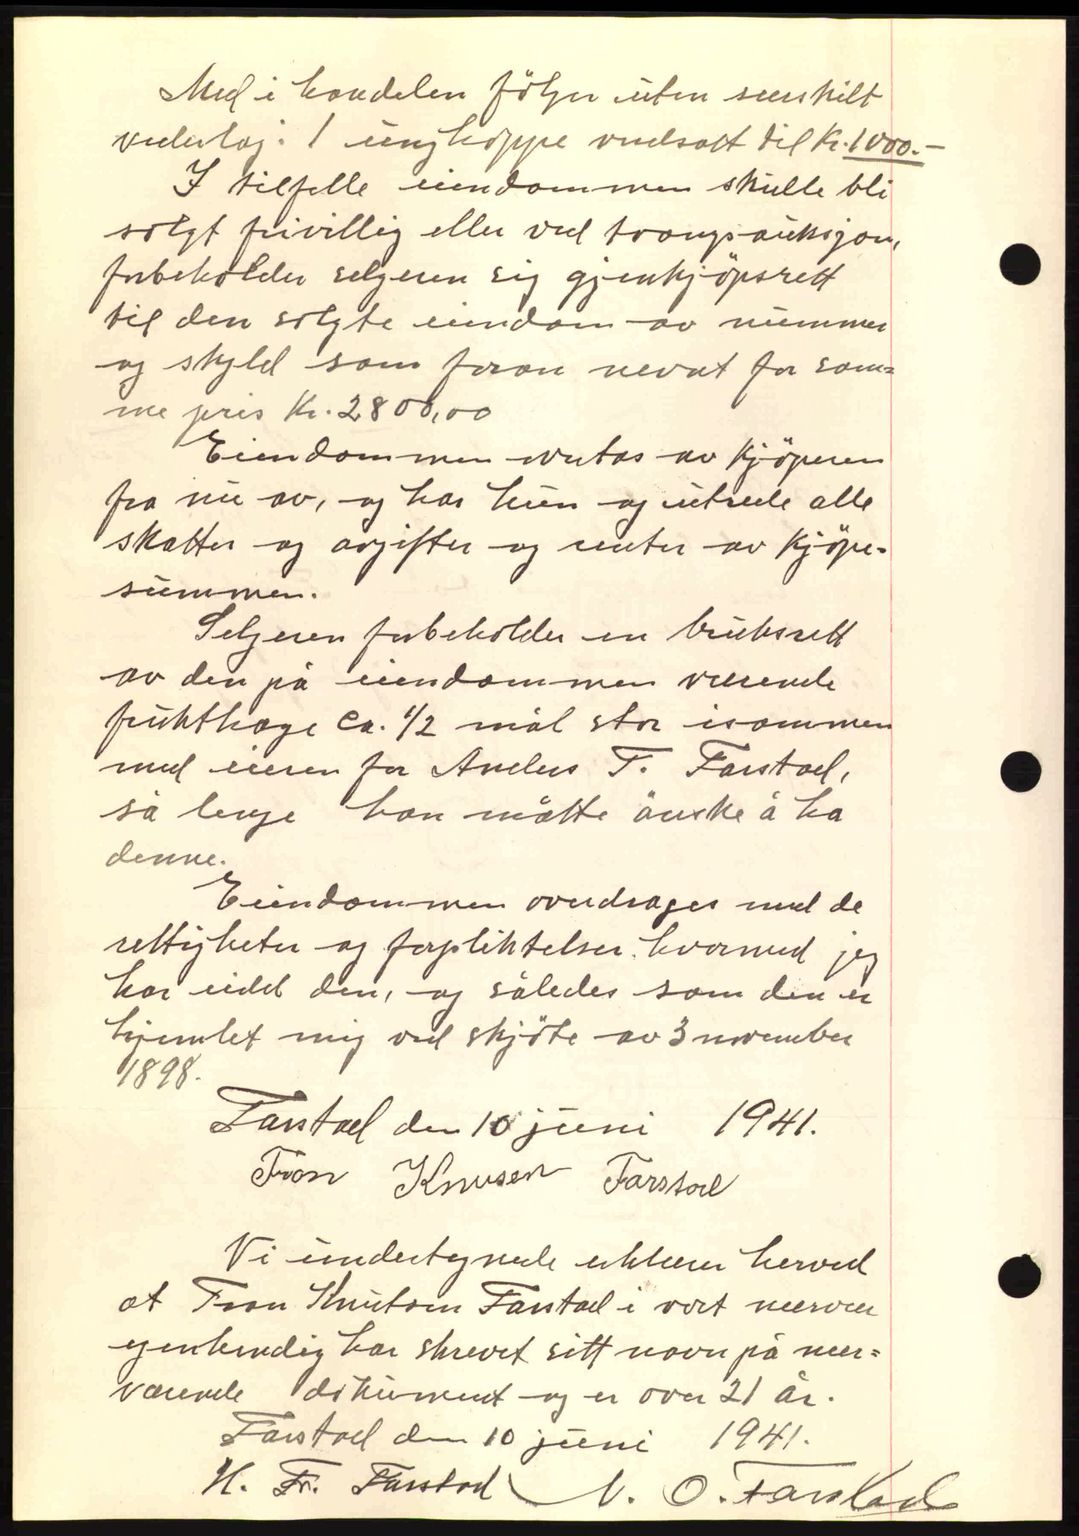 Med i handelen følger uten særskilt
vederlag: 1 unghoppe verdsatt til kr. 1000.-
I tilfelle eiendommen skulle bli
solgt frivillig eller ved tvangsauksjon,
forbeholder selgeren sig gjenkjöpsrett
til den solgte eiendom av nummer
og skyld som foran nevnt for sam=
me pris kr. 2800,00
Eiendommen overtas av kjöperen
fra nu av, og har hun og utrede alle
skatter og avgifter og renter av kjöpe-
summen.
Selgeren forbeholder en bruksrett
av den på eiendommen værende
frukthage ca. 1/2 mål stor isammen
med eieren for Anders T. Farstad,
så lenge han måtte önske å ha
denne.
Eiendommen overdrages med de
rettigheter og forpliktelser hvormed jeg
har eidd den, og således som den er
hjemlet mig ved skjöte av 3 november
1898.
Farstad den 10 juni 1941.
Tron Knusen Farstad
Vi undertegnede erklærer herved
at Tron Knutsen Farstad i vort nærvær
egenhendig har skrevet sitt navn på nær=
værende dokument og er over 21 år.
Farstad den 10 juni 1941.
H. Fr. Farstad N. O. Farstad